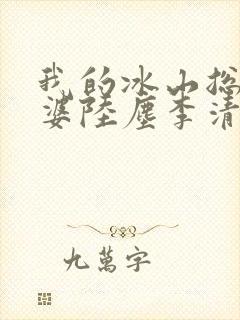 我的冰山总
婆陸塵李清
九萬字